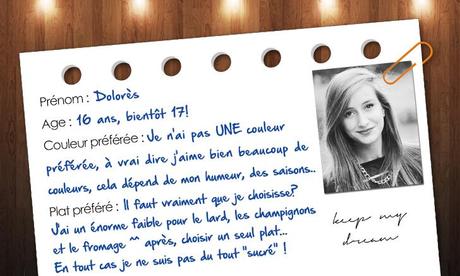 Prénom : Dolorès
Age : 16 ans, bientôt 17!
Couleur préférée : Je n'ai pas UNE couleur
préférée, à vrai dire j'aime bien beaucoup de
couleurs, cela dépend de mon humeur, des saisons..
Plat préféré : Il faut vraiment que je choisisse?
J'ai un énorme faible pour le lard, les champignons
et le fromage ^^ après, choisir un seul plat...
En tout cas je ne suis pas du tout "sucré" !
keep my
dream